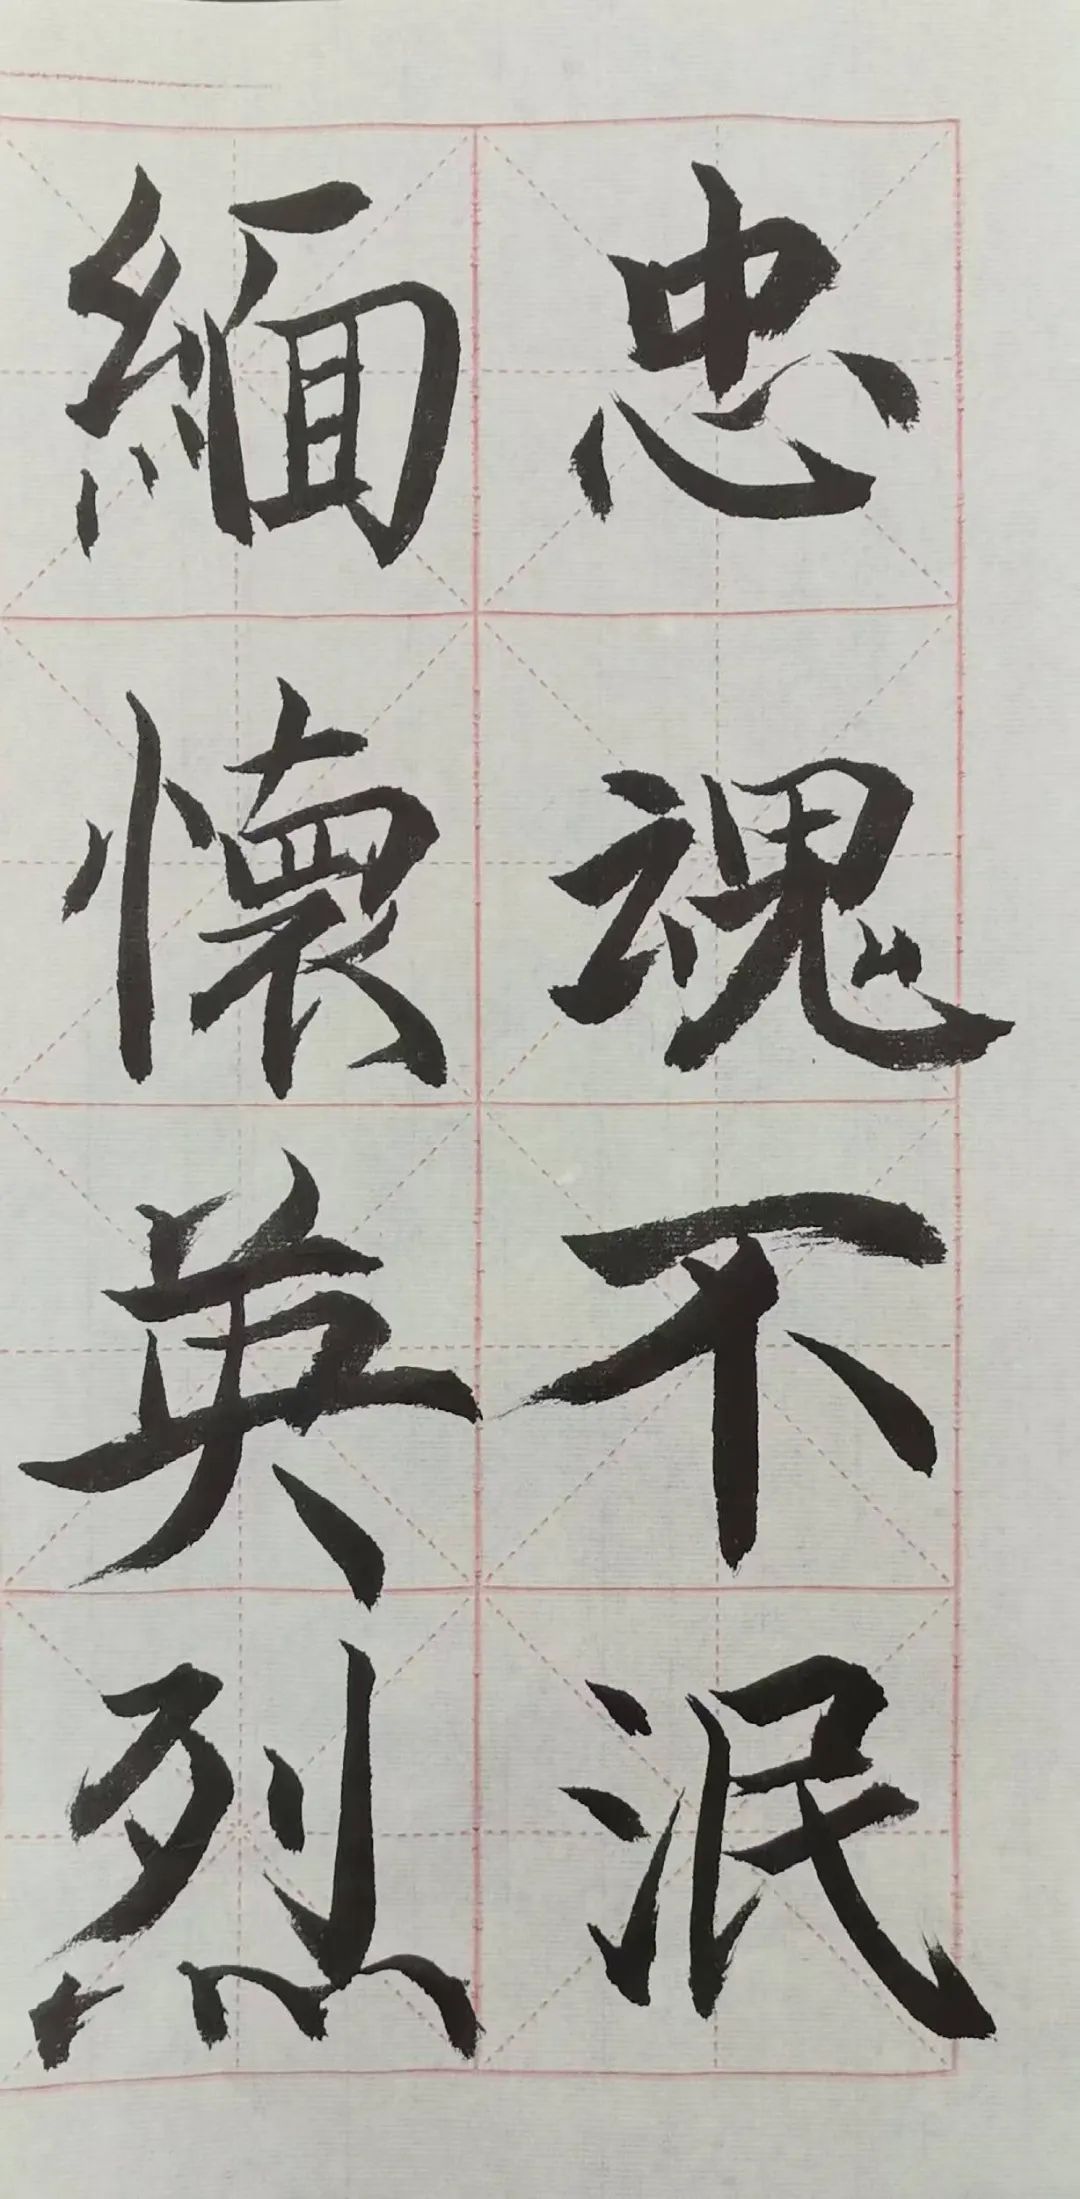 忠魂不泯
緬懷英烈